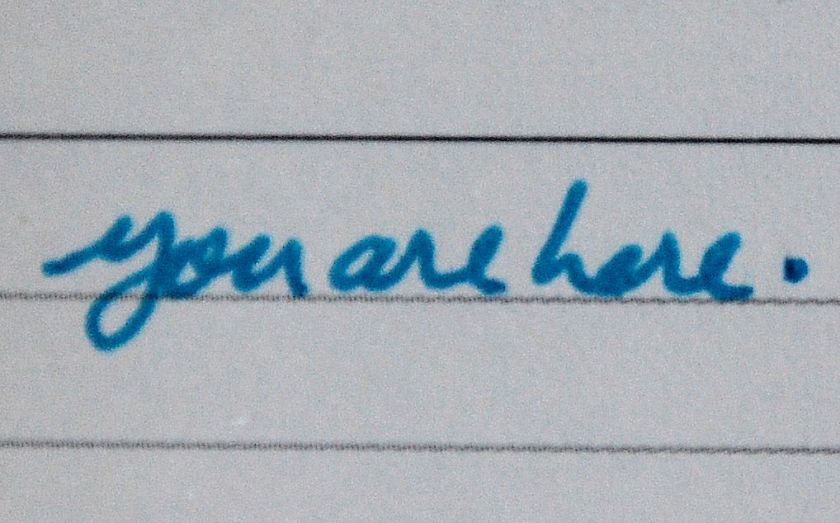 you are here.